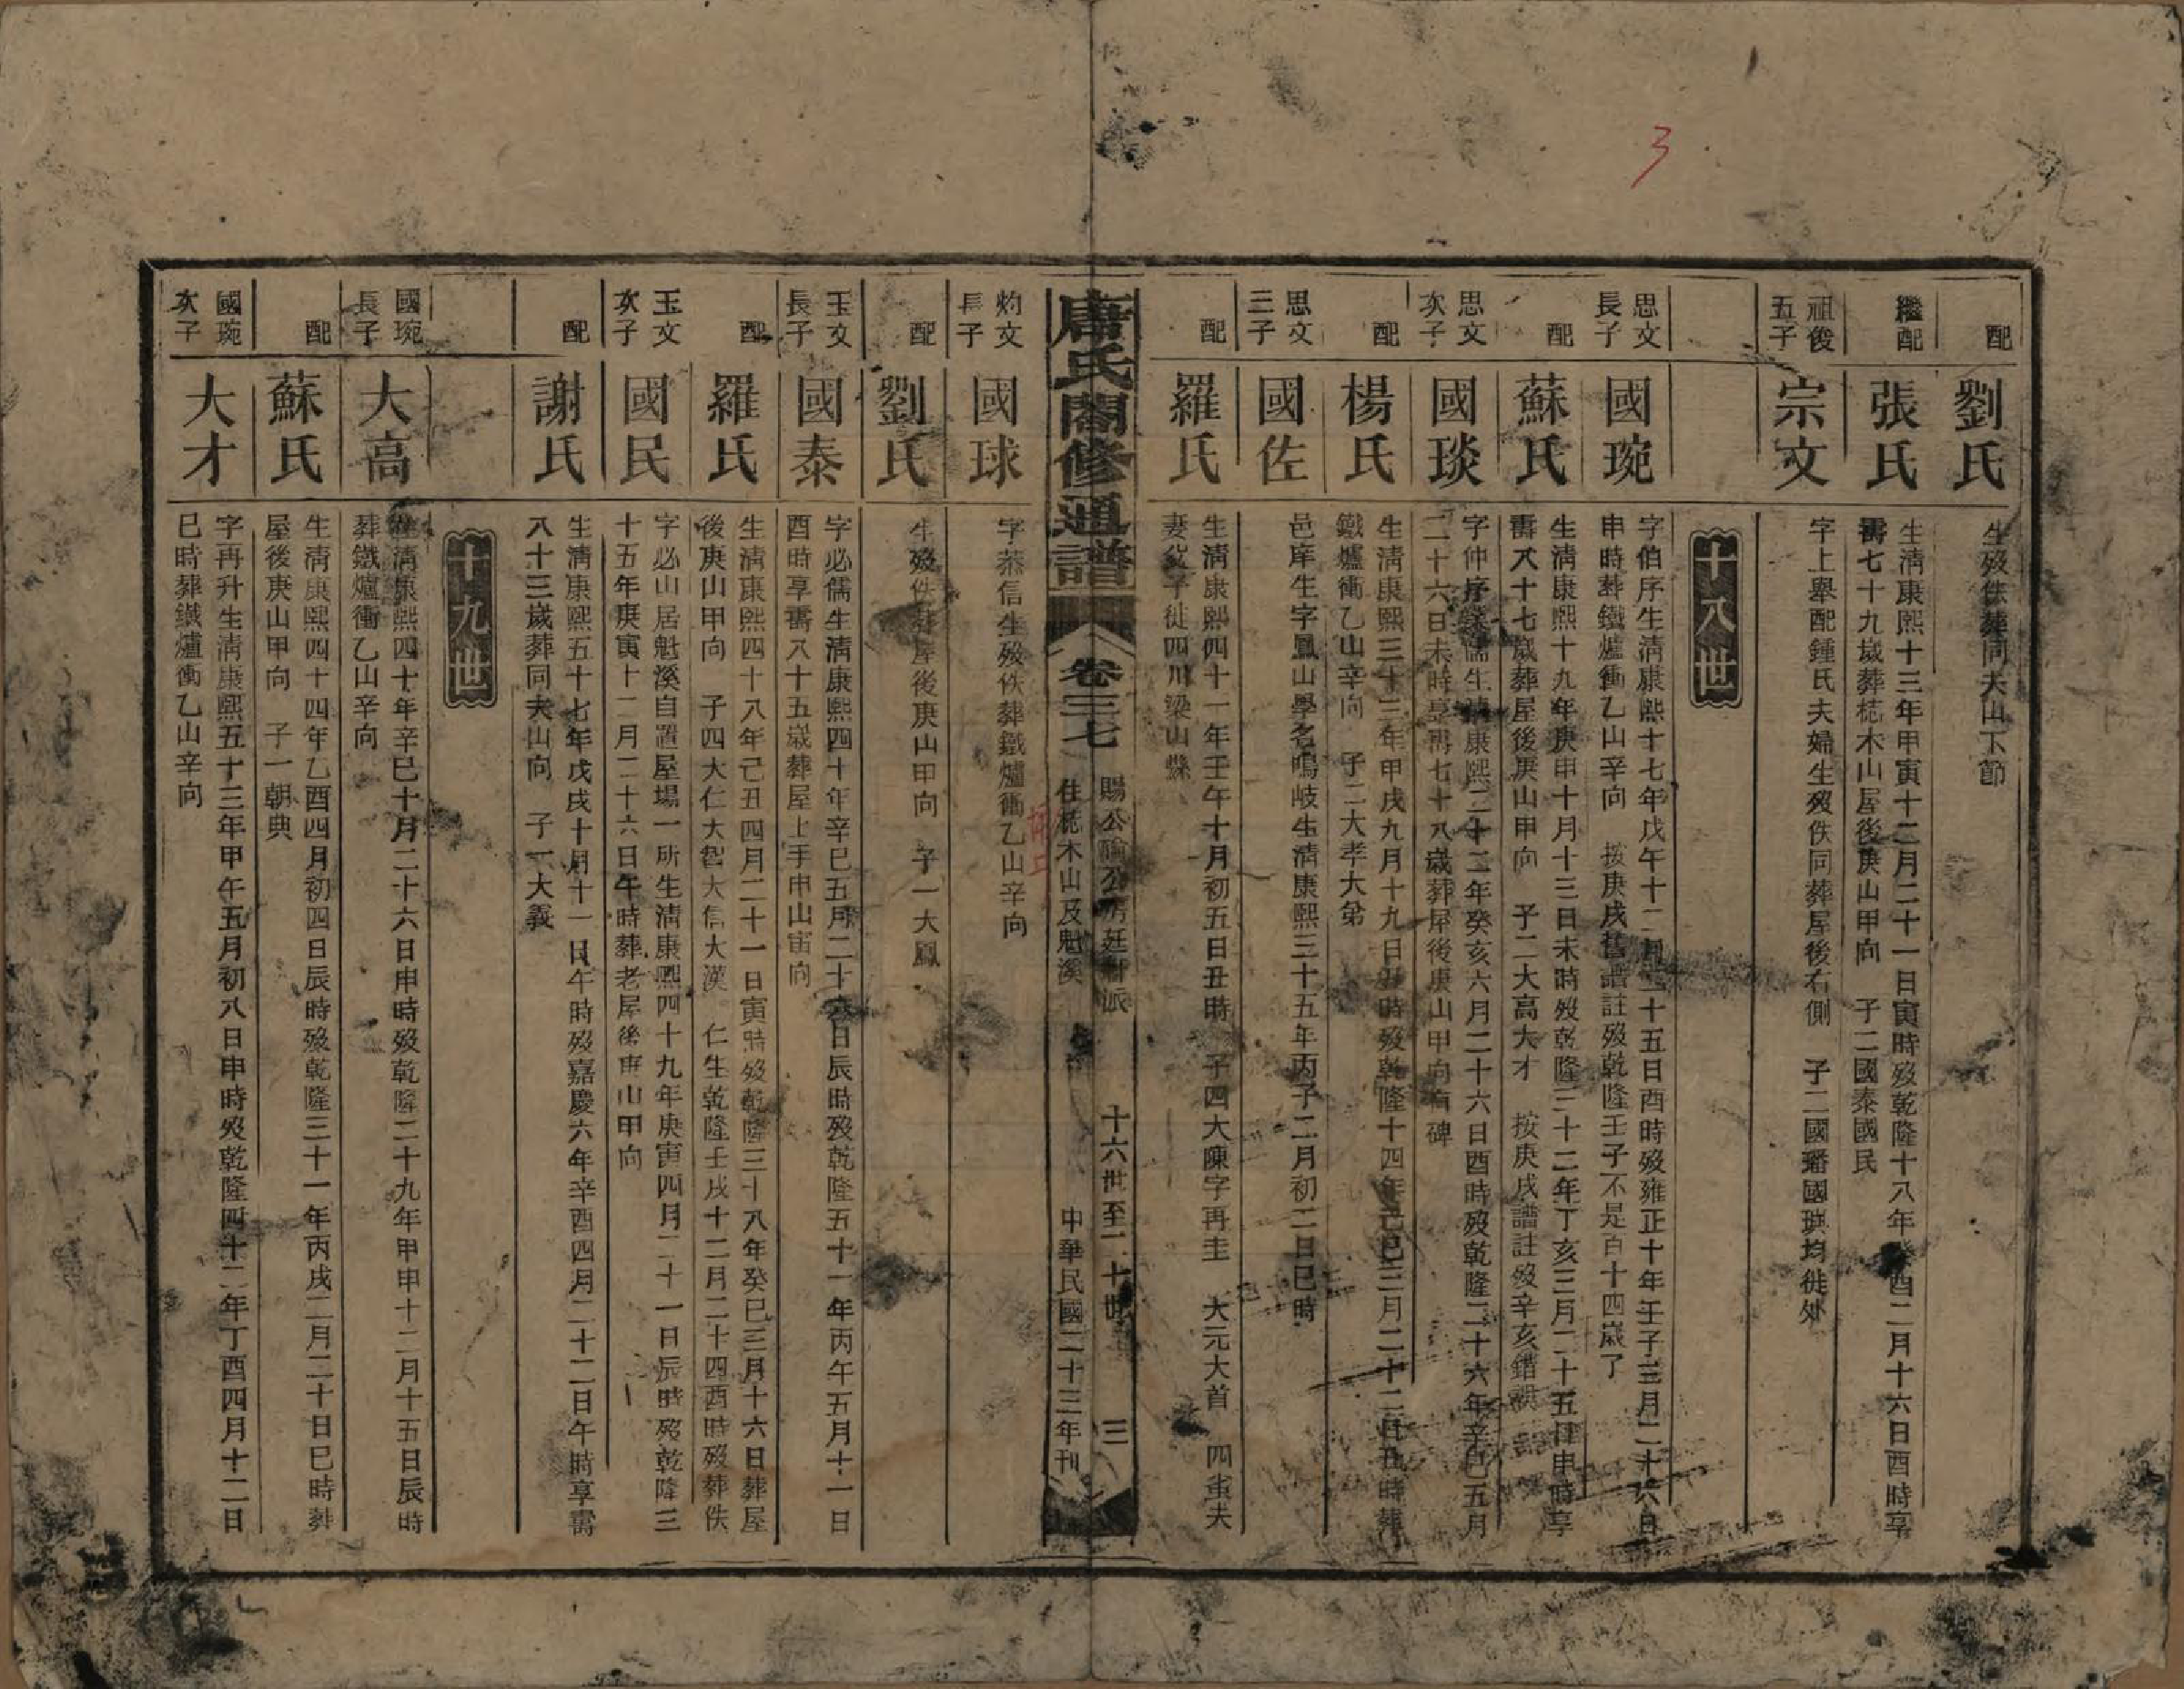 3
配
劉氏
生歿佚葬同夫山下節
繼配
張氏
生淸康熙十三年甲寅十二月二十一日寅時歿乾隆十八年癸酉二月十六日酉時享
壽七十九歲葬梽木山屋後庚山甲向　子二國泰國民
祖俊
五子
宗文
字上舉配鍾氏夫婦生歿佚同葬屋後右側　子二國璠國珙均徙外
十八世
思文
長子
國琬
字伯序生淸康熙十七年戊午十二月二十五日酉時歿雍正十年壬子三月二十六日
申時葬鐵爐衝乙山辛向　按庚戌舊譜註歿乾隆壬子不是百十四歲了
配
蘇氏
生淸康熙十九年庚申十月十三日未時歿乾隆三十二年丁亥三月二十五日申時享
壽八十七歲葬屋後庚山甲向　子二大高大才　按庚戌譜註歿辛亥錯誤
思文
次子
國琰
字仲序業儒生淸康熙二十二年癸亥六月二十六日酉時歿乾隆二十六年辛巳五月
二十六日未時享壽七十八歲葬屋後庚山甲向有碑
配
楊氏
生淸康熙三十三年甲戌九月十九日丑時歿乾隆十四年己巳三月二十二日丑時葬
鐵爐衝乙山辛向　子二大孝大弟
思文
三子
國佐
邑庠生字鳳山學名鳴岐生淸康熙三十五年丙子二月初二日巳時
配
羅氏
生淸康熙四十一年壬午十月初五日丑時　子四大陳字再圭　大元大首　四隹夫
妻父子徙四川梁山縣
唐氏閤修通譜
卷三七
賜公房廷派
住梽木山及魁溪
十六世至二十世
中華民國二十三年刊
三
灼文
長子
國球
字恭信生歿佚葬鐵爐衝乙山辛向
配
劉氏
生歿佚葬屋後庚山甲向　子一大鳳
玉文
長子
國泰
字必儒生淸康熙四十年辛巳五月二十六日辰時歿乾隆五十一年丙午五月十一日
酉時享壽八十五歲葬屋上手申山寅向
配
羅氏
生淸康熙四十八年己丑四月二十一日寅時歿乾隆三十八年癸巳三月十六日葬屋
後庚山甲向　子四大仁大智大信大漢　仁生乾隆壬戌十二月二十四酉時歿葬佚
玉文
次子
國民
字必山居魁溪自置屋場一所生淸康熙四十九年庚寅四月二十一日辰時歿乾隆三
十五年庚寅十二月二十六日午時葬老屋後庚山甲向
配
謝氏
生淸康熙五十七年戊戌十月十一日午時歿嘉慶六年辛酉四月二十二日午時享壽
八十三歲葬同夫山向　子一大義
十九世
國琬
長子
大高
生淸康熙四十年辛巳十月二十六日申時歿乾隆二十九年甲申十二月十五日辰時
葬鐵爐衝乙山辛向
配
蘇氏
生淸康熙四十四年乙酉四月初四日辰時歿乾隆三十一年丙戌二月二十日巳時葬
屋後庚山甲向　子一朝典
國琬
次子
大才
字再升生淸康熙五十三年甲午五月初八日申時歿乾隆四十二年丁酉四月十二日
巳時葬鐵爐衝乙山辛向